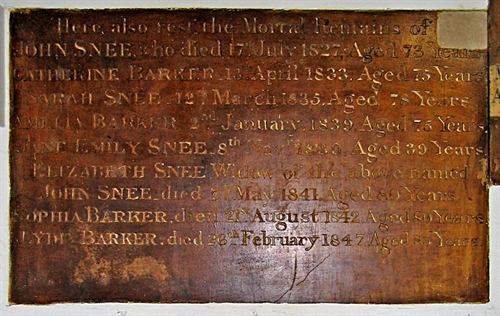 Here, also rest the Mortal Remains of
JOHN SNEE, who died 17th July 1827, Aged 73 Years
CATHERINE BARKER, 13th April 1833, Aged 75 Years
SARAH SNEE, 12th March 1835, Aged 78 Years
AMELIA BARKER 2nd January 1839, Aged 75 Years
JANE EMILY SNEE, 8th Aged 39 Years
ELIZABETH SNEE Widow of the above named
JOHN SNEE, died May 1841, Aged 80 Years
SOPHIA BARKER, died 21st August 1842 Aged 80 Years
LYDIA BARKER, died 26th February 1847, Aged Years